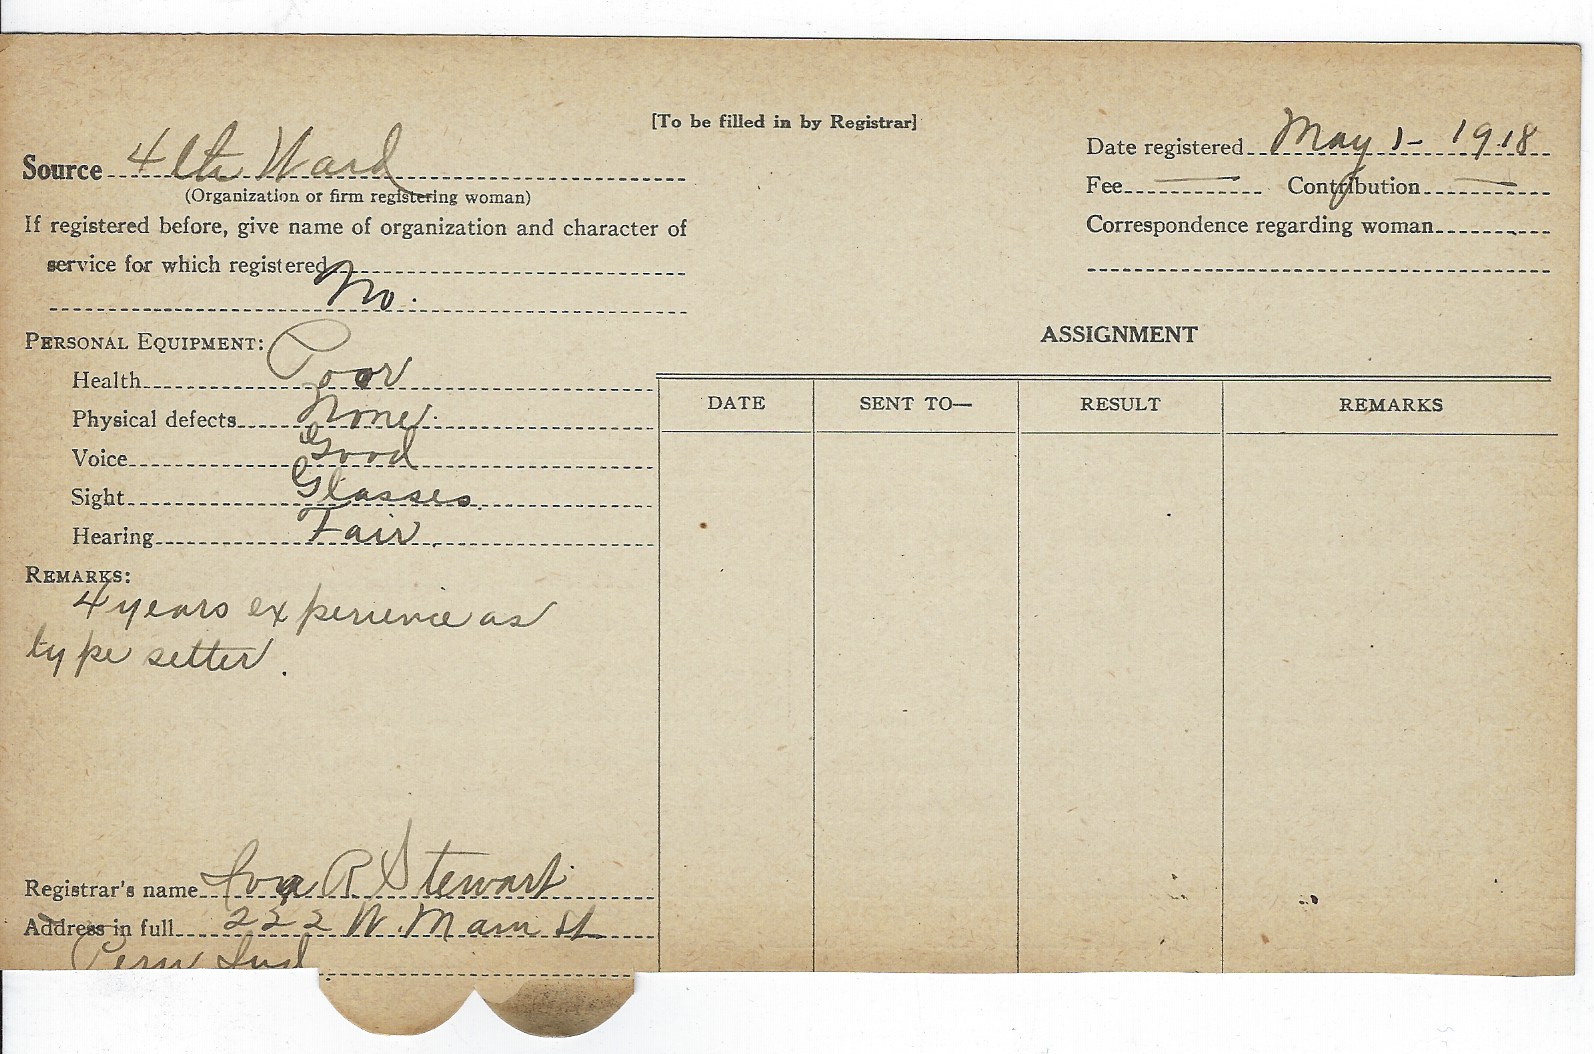 [To be filled in by Registrar]
Source 4th Ward
(Organization or firm registering woman)
Date registered May 1- 1918
Fee — Contribution —
If registered before, give name of organization and character of
service for which registered
No.
Correspondence regarding woman
PERSONAL EQUIPMENT:
Health Poor
Physical defects None.
Voice Good
Sight Glasses.
Hearing Fair.
REMARKS:
4 years experience as
type setter.
Registrar's name Iva R Stewart
Address in full 222 W. Main St
Peru Ind
ASSIGNMENT
DATE SENT TO— RESULT REMARKS